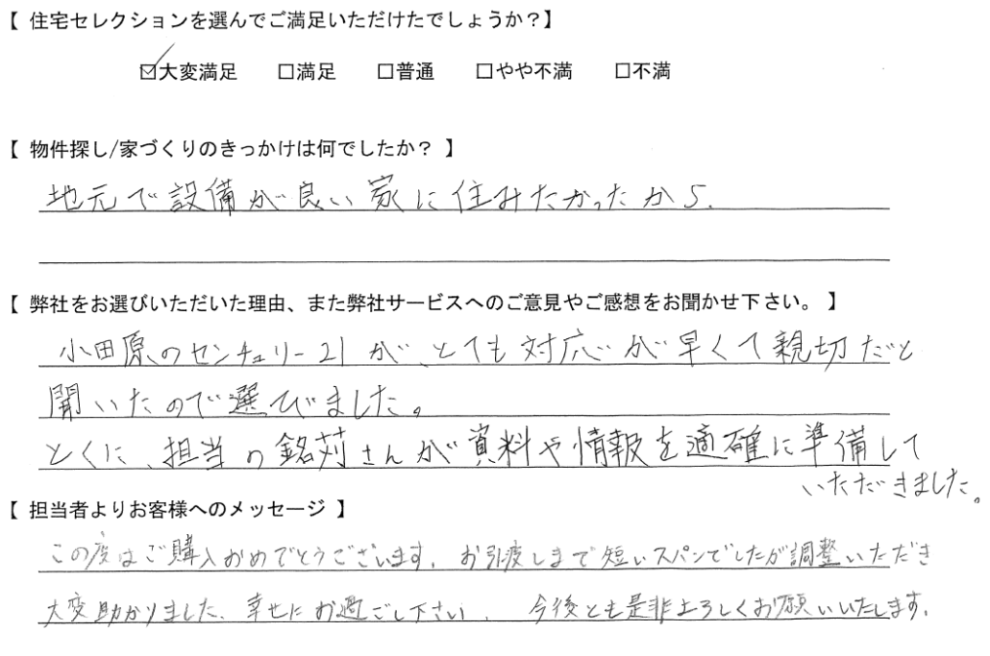 【 住宅セレクションを選んでご満足いただけたでしょうか？】
☑大変満足 □満足 □普通 □やや不満 □不満
【 物件探し/家づくりのきっかけは何でしたか？ 】
地元で設備が良い家に住みたかったから.
【 弊社をお選びいただいた理由、また弊社サービスへのご意見やご感想をお聞かせ下さい。 】
小田原のセンチュリー21が、とても対応が早くて親切だと
聞いたので選びました。
とくに、担当の銘苅さんが資料や情報を適確に準備して
いただきました。
【 担当者よりお客様へのメッセージ 】
この度はご購入おめでとうございます。お引渡しまで短いスパンでしたが調整いただき
大変助かりました。幸せにお過ごし下さい。 今後とも是非よろしくお願いいたします。